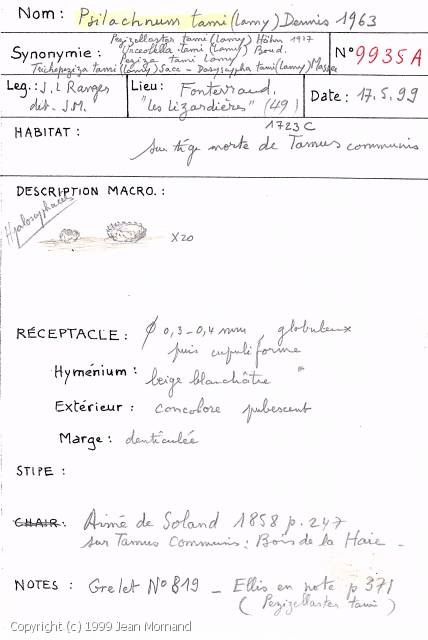 Nom : Psilachnum tami (Lamy) Dennis 1963
Pezizellaster tami (Lamy) Höhn 1917
Synonymie : Urceolella tami (Lamy) Boud.
Peziza tami Lamy
Trichopeziza tami (Lamy) Sacc - Dasyscypha tami (Lamy) Massee
N° 9935A
Leg. : J. L Ranger
det. J.M.
Lieu : Fonterraud.
"les Lizardières" (49)
Date : 17.5.99
1723C
HABITAT :
sur tige morte de Tamus communis
DESCRIPTION MACRO. :
Hyaloscyphacées
X20
RÉCEPTACLE : Ø 0,3-0,4 mm, globuleux
puis cupuliforme
Hyménium : beige blanchâtre
Extérieur : concolore pubescent
Marge : denticulée
STIPE :
CHAIR : Aimé de Soland 1858 p. 247
sur Tamus Communis : Bois de la Haie -
NOTES : Grelet N° 819 - Ellis en note p 371
(Pezizellaster tami)
Copyright (c) 1999 Jean Mornand